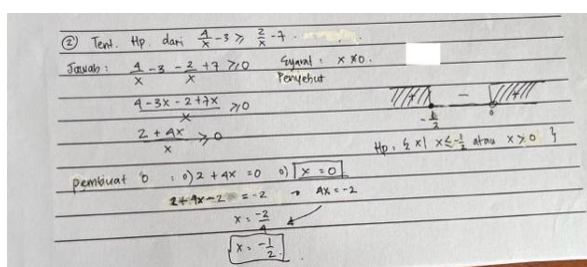 ② Tent. Hp. dari 4/x - 3 ≥ 2/x - 7.
Jawab : 4/x - 3 - 2/x + 7 ≥ 0 Syarat : x ≠ 0.
Penyebut
4 - 3x - 2 + 7x / x ≥ 0
2 + 4x / x ≥ 0
- 1/2 - 0
Hp : { x | x ≤ - 1/2 atau x > 0 }
pembuat 0 : o) 2 + 4x = 0 o) x = 0
2 + 4x - 2 = -2 → 4x = -2
x = -2/4
x = - 1/2 .